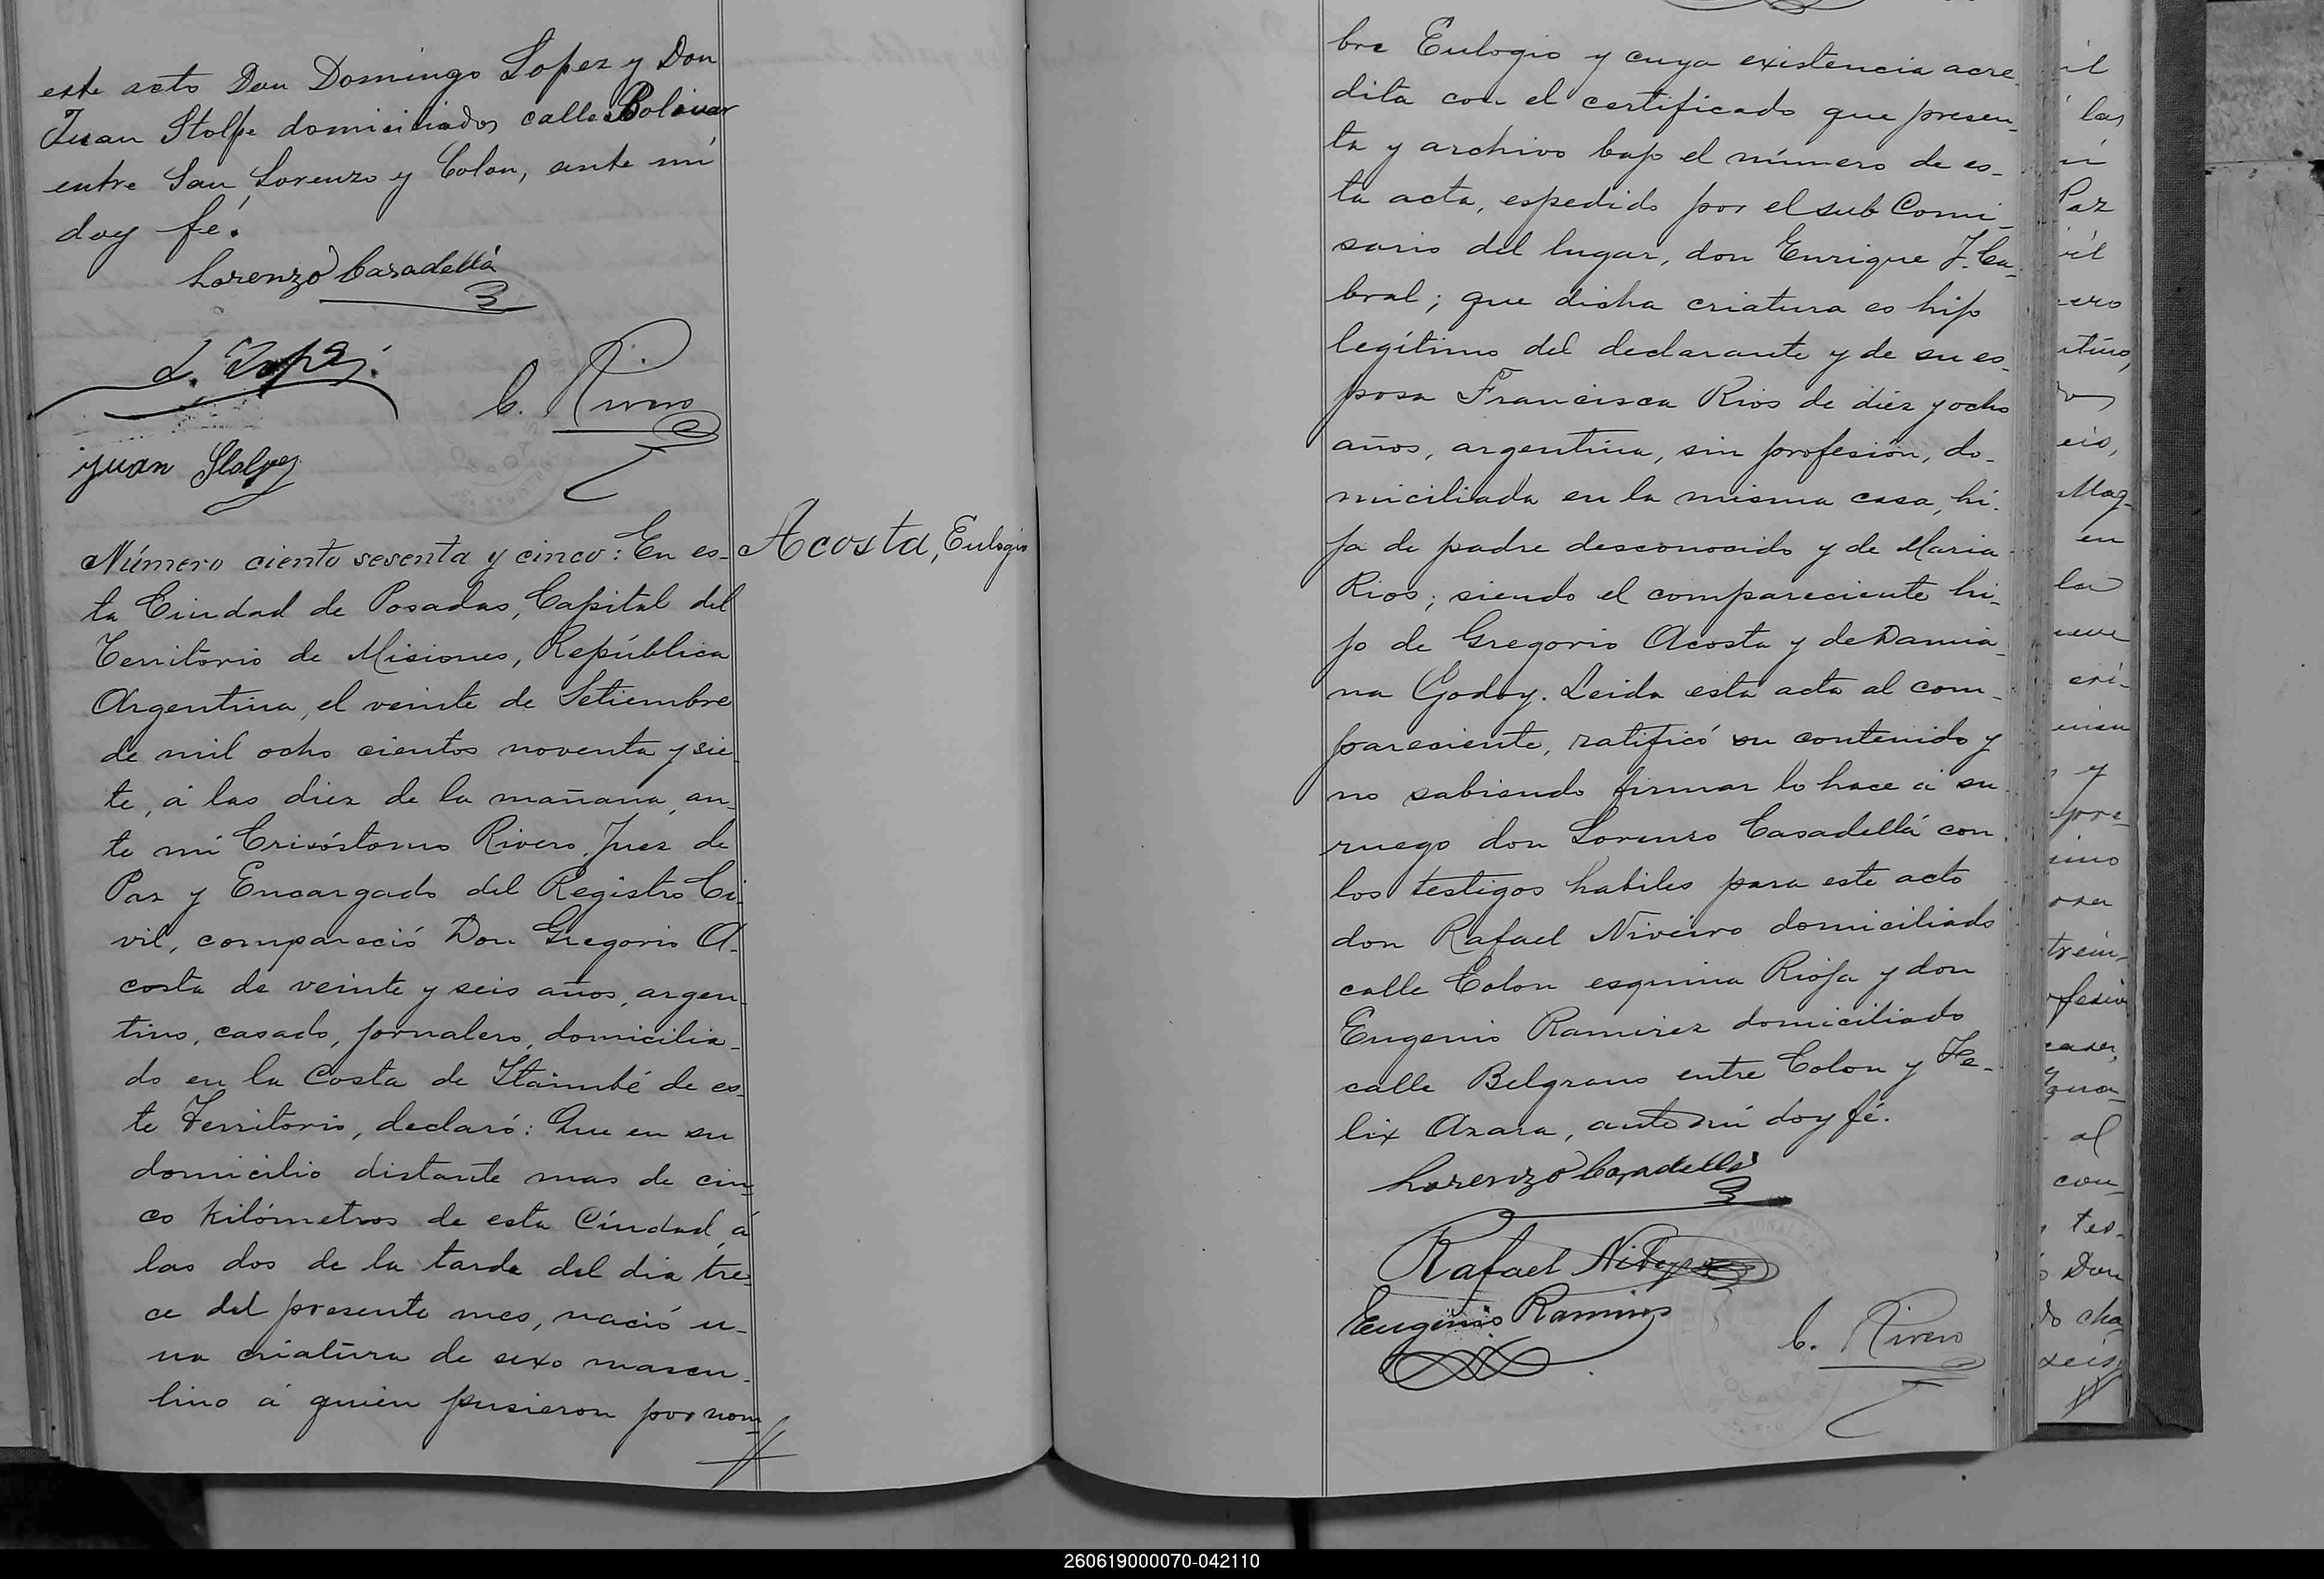 este acto Don Domingo Lopez y Don
Juan Stolpe domiciliados calle Bolivar
entre San Lorenzo y Colon, ante mí
doy fé.
Lorenzo Casadellá
Juan Stolpe
C. Rivero
Número ciento sesenta y cinco: En es-
ta Ciudad de Posadas, Capital del
Territorio de Misiones, República
Argentina, el veinte de Setiembre
de mil ocho cientos noventa y sie-
te, á las diez de la mañana, an-
te mí Crisóstomo Rivero, Juez de
Paz y Encargado del Registro Ci-
vil, compareció Don Gregorio A-
costa de veinte y seis años, argen-
tino, casado, jornalero, domicilia-
do en la Costa de Itaimbé de es-
te Territorio, declaró: Que en su
domicilio distante mas de cin-
co kilómetros de esta Ciudad, á
las dos de la tarde del dia tre-
ce del presente mes, nació u-
na criatura de sexo mascu-
lino á quién pusieron por nom-
Acosta, Eulogio
bre Eulogio y cuya existencia acre-
dita con el certificado que presen-
ta y archivo bajo el número de es-
ta acta, espedido por el sub Comi-
sario del lugar, don Enrique J. Ca-
bral; que dicha criatura es hijo
legítimo del declarante y de su es-
posa Francisca Rios de diez y ocho
años, argentina, sin profesión, do-
miciliada en la misma casa, hi-
ja de padre desconocido y de Maria
Rios; siendo el compareciente hi-
jo de Gregorio Acosta y de Damia-
na Godoy. Leida esta acta al com-
pareciente, ratificó su contenido y
no sabiendo firmar lo hace á su
ruego don Lorenzo Casadellá con
los testigos habiles para este acto
don Rafael Niveiro domiciliado
calle Colon esquina Rioja y don
Eugenio Ramirez domiciliado
calle Belgrano entre Colon y Fe-
lix Azara, ante mí doy fé.
Lorenzo Casadellá
Rafael Niveyro
Eugenio Ramires
C. Rivero
260619000070-042110